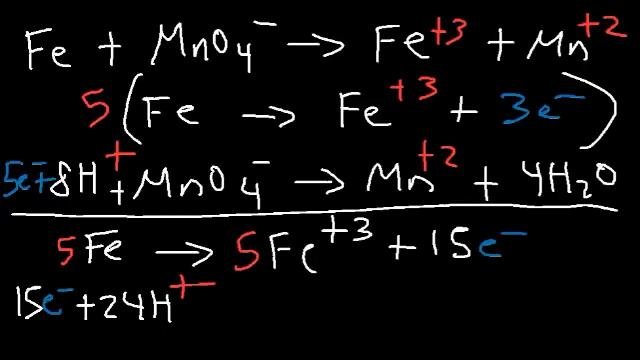 Fe + MnO₄⁻ → Fe⁺³ + Mn⁺²
5 (Fe → Fe⁺³ + 3e⁻)
5e⁻+8H⁺ + MnO₄⁻ → Mn⁺² + 4H₂O
5Fe → 5Fe⁺³ + 15e⁻
15e⁻ + 24H⁺